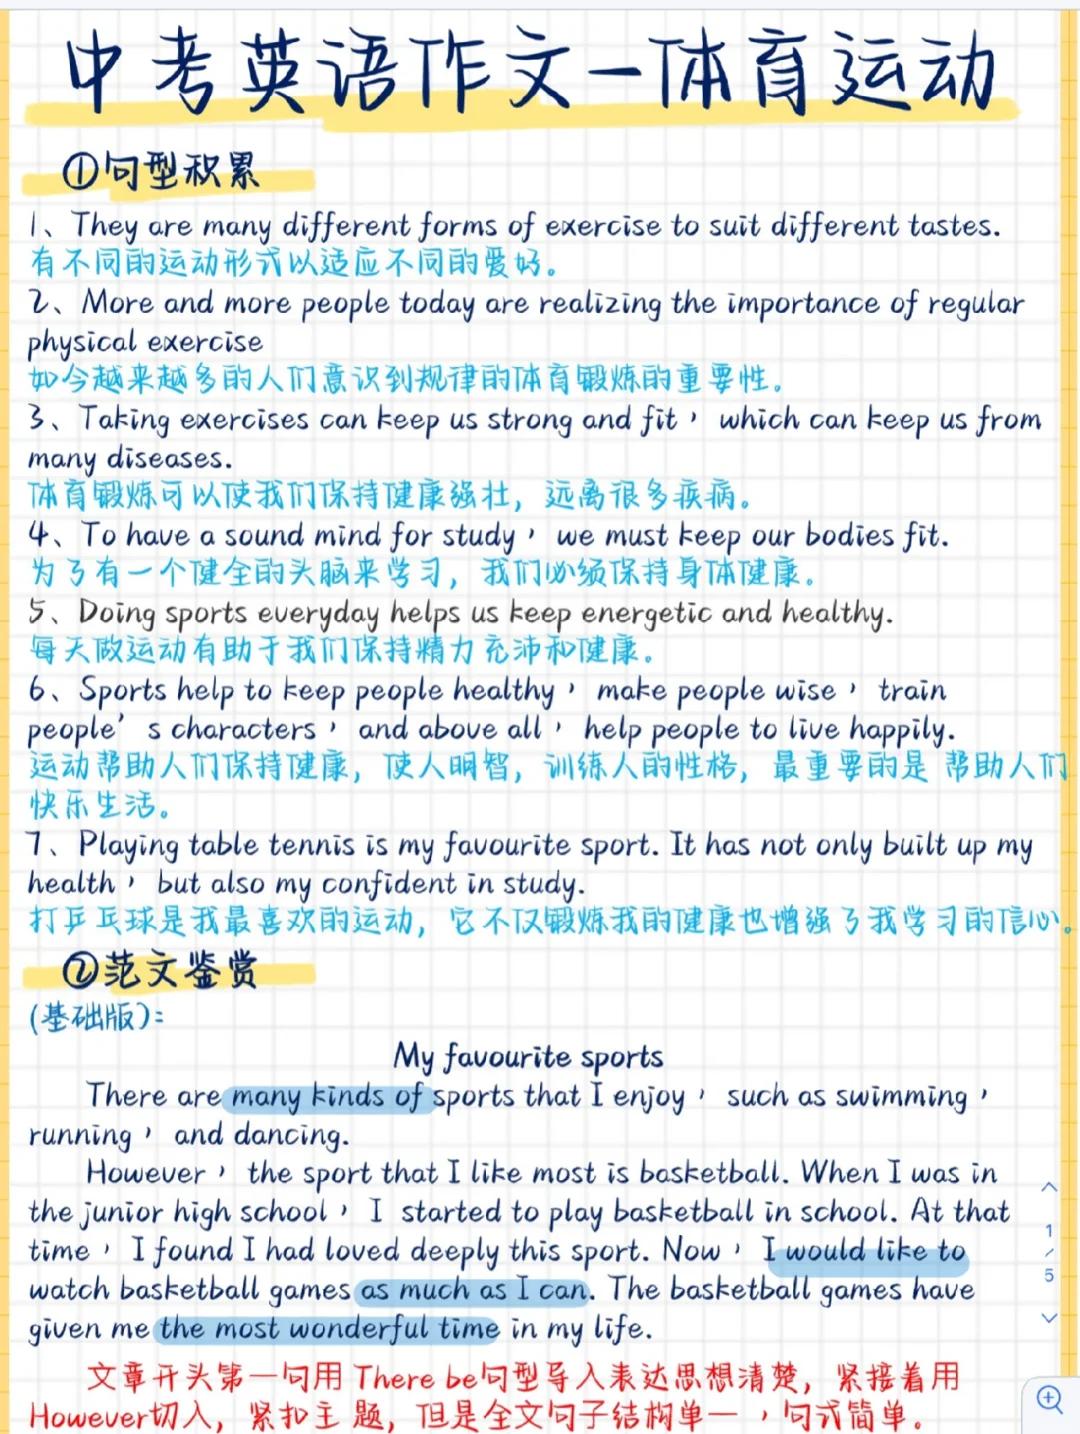 中考英语作文-体育运动
①句型积累
1、They are many different forms of exercise to suit different tastes.
有不同的运动形式以适应不同的爱好。
2、More and more people today are realizing the importance of regular
physical exercise
如今越来越多的人们意识到规律的体育锻炼的重要性。
3、Taking exercises can keep us strong and fit，which can keep us from
many diseases.
体育锻炼可以使我们保持健康强壮，远离很多疾病。
4、To have a sound mind for study，we must keep our bodies fit.
为了有一个健全的头脑来学习，我们必须保持身体健康。
5、Doing sports everyday helps us keep energetic and healthy.
每天做运动有助于我们保持精力充沛和健康。
6、Sports help to keep people healthy，make people wise，train
people’s characters，and above all，help people to live happily.
运动帮助人们保持健康，使人明智，训练人的性格，最重要的是 帮助人们
快乐生活。
7、Playing table tennis is my favourite sport. It has not only built up my
health，but also my confident in study.
打乒乓球是我最喜欢的运动，它不仅锻炼我的健康也增强了我学习的信心。
②范文鉴赏
(基础版):
My favourite sports
There are many kinds of sports that I enjoy，such as swimming，
running，and dancing.
However，the sport that I like most is basketball. When I was in
the junior high school，I started to play basketball in school. At that
time，I found I had loved deeply this sport. Now，I would like to
watch basketball games as much as I can. The basketball games have
given me the most wonderful time in my life.
文章开头第一句用 There be句型导入表达思想清楚，紧接着用
However切入，紧扣主题，但是全文句子结构单一，句式简单。
1/5